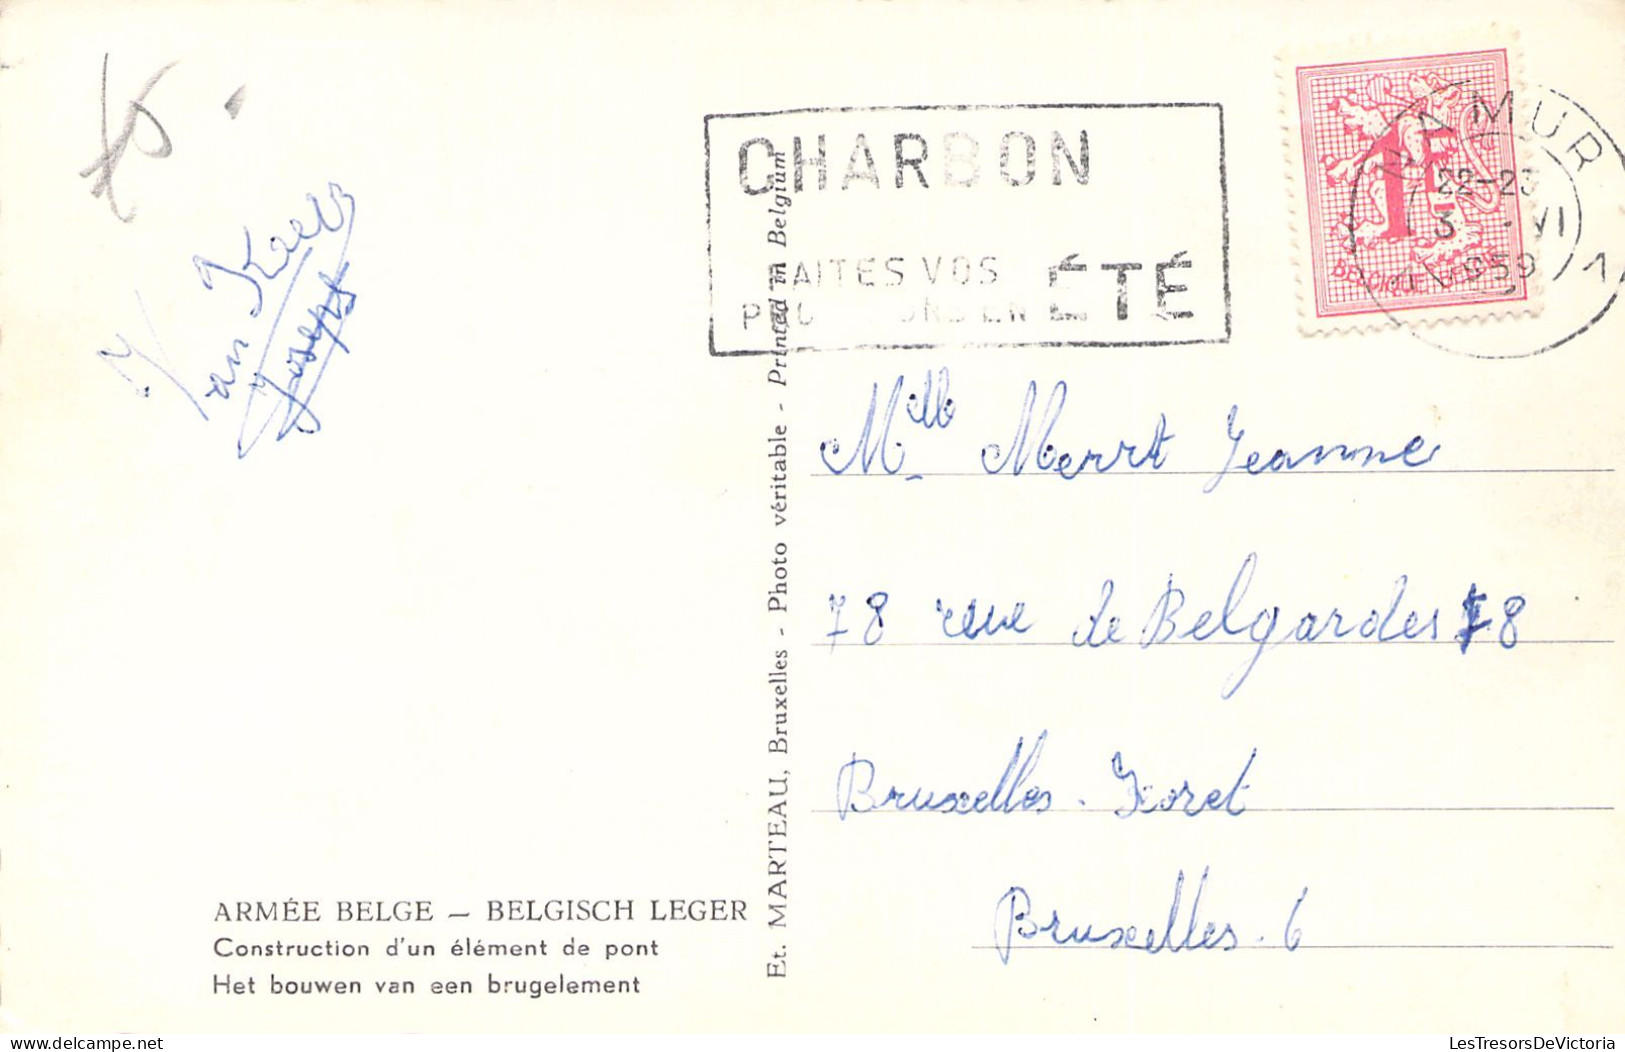 Van
Joseph
CHARBON
FAITES VOS
EN ÉTÉ
NAMUR
22-23
3 · VI
1959
1
1F
BELGIQUE BELGIE
Mlle Merrt Jeanne
78 rue de Belgardes 78
Bruxelles. Foret
Bruxelles. 6
Et. MARTEAU, Bruxelles - Photo véritable - Printed in Belgium
ARMÉE BELGE — BELGISCH LEGER
Construction d'un élément de pont
Het bouwen van een brugelement
delcampe.net
LesTresorsDeVictoria